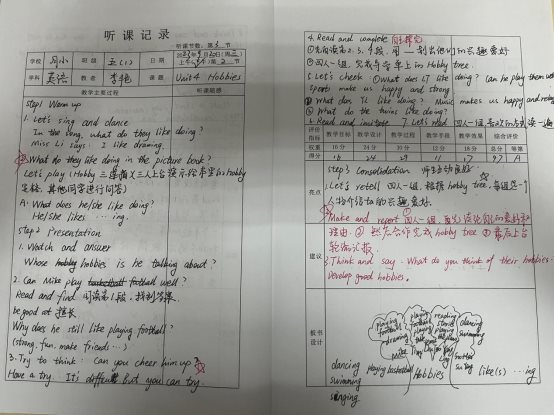 听课记录
听课节数:第 3 节
2023年9月20日(周三)
上午(下午)第2节
学校
班级 五(1) 日期
学科 英语 教者 李艳 课题 Unit4 Hobbies
教学主要过程 听课随感
Step1 Warm up
1. Let's sing and dance
In the song, what do they like doing?
Miss Li says: I like drawing.
2. What do they like doing in the picture book?
Let's play (Hobby 三人上台演示绘本里的hobby
其他同学进行问答)
A: What does he/she like doing?
He/she likes ...ing.
Step2 Presentation
1. Watch and answer
Whose hobbies is he talking about?
2. Can Mike play football well?
Read and find 阅读第1段,找到答案
be good at 擅长
Why does he still like playing football?
(strong, fun, make friends...)
3. Try to think: Can you cheer him up?
Have a try. It's difficult But you can try.
4. Read and complete
①先阅读第2、3、4段,用 — 划出他们的兴趣爱好
②四人一组,完成导学单上 Hobby tree.
5. Let's check ① What does LT like doing? Can he play them well
Sports make us happy and strong
② What does YL like doing? Music makes us happy and relaxed
③ What do the twins like doing?
6. Read and imitate 7. Let's read 四人一组,
评价指标 教学目标 教学设计 教学过程 教学手段 教学效果 综合评价
权重 16分 24分 30分 12分 18分 总分 等第
得分 16 24 29 11 17 97 A
亮点
Step3 Consolidation
1. Let's retell 四人一组,根据hobby tree,每组选一个
人物介绍他的兴趣爱好.
2. Make and report ①四人一组,首先谈论自己的爱好和
理由.② 然后合作完成hobby tree ③最后上台
轮流汇报
建议
3. Think and say: What do you think of their hobbies.
Develop good hobbies.
板书设计
playing football
drawing
Mike
playing basketball
playing football
reading stories
dancing
swimming
Su Yang
Hobbies
like(s) ...ing
dancing
swimming
singing